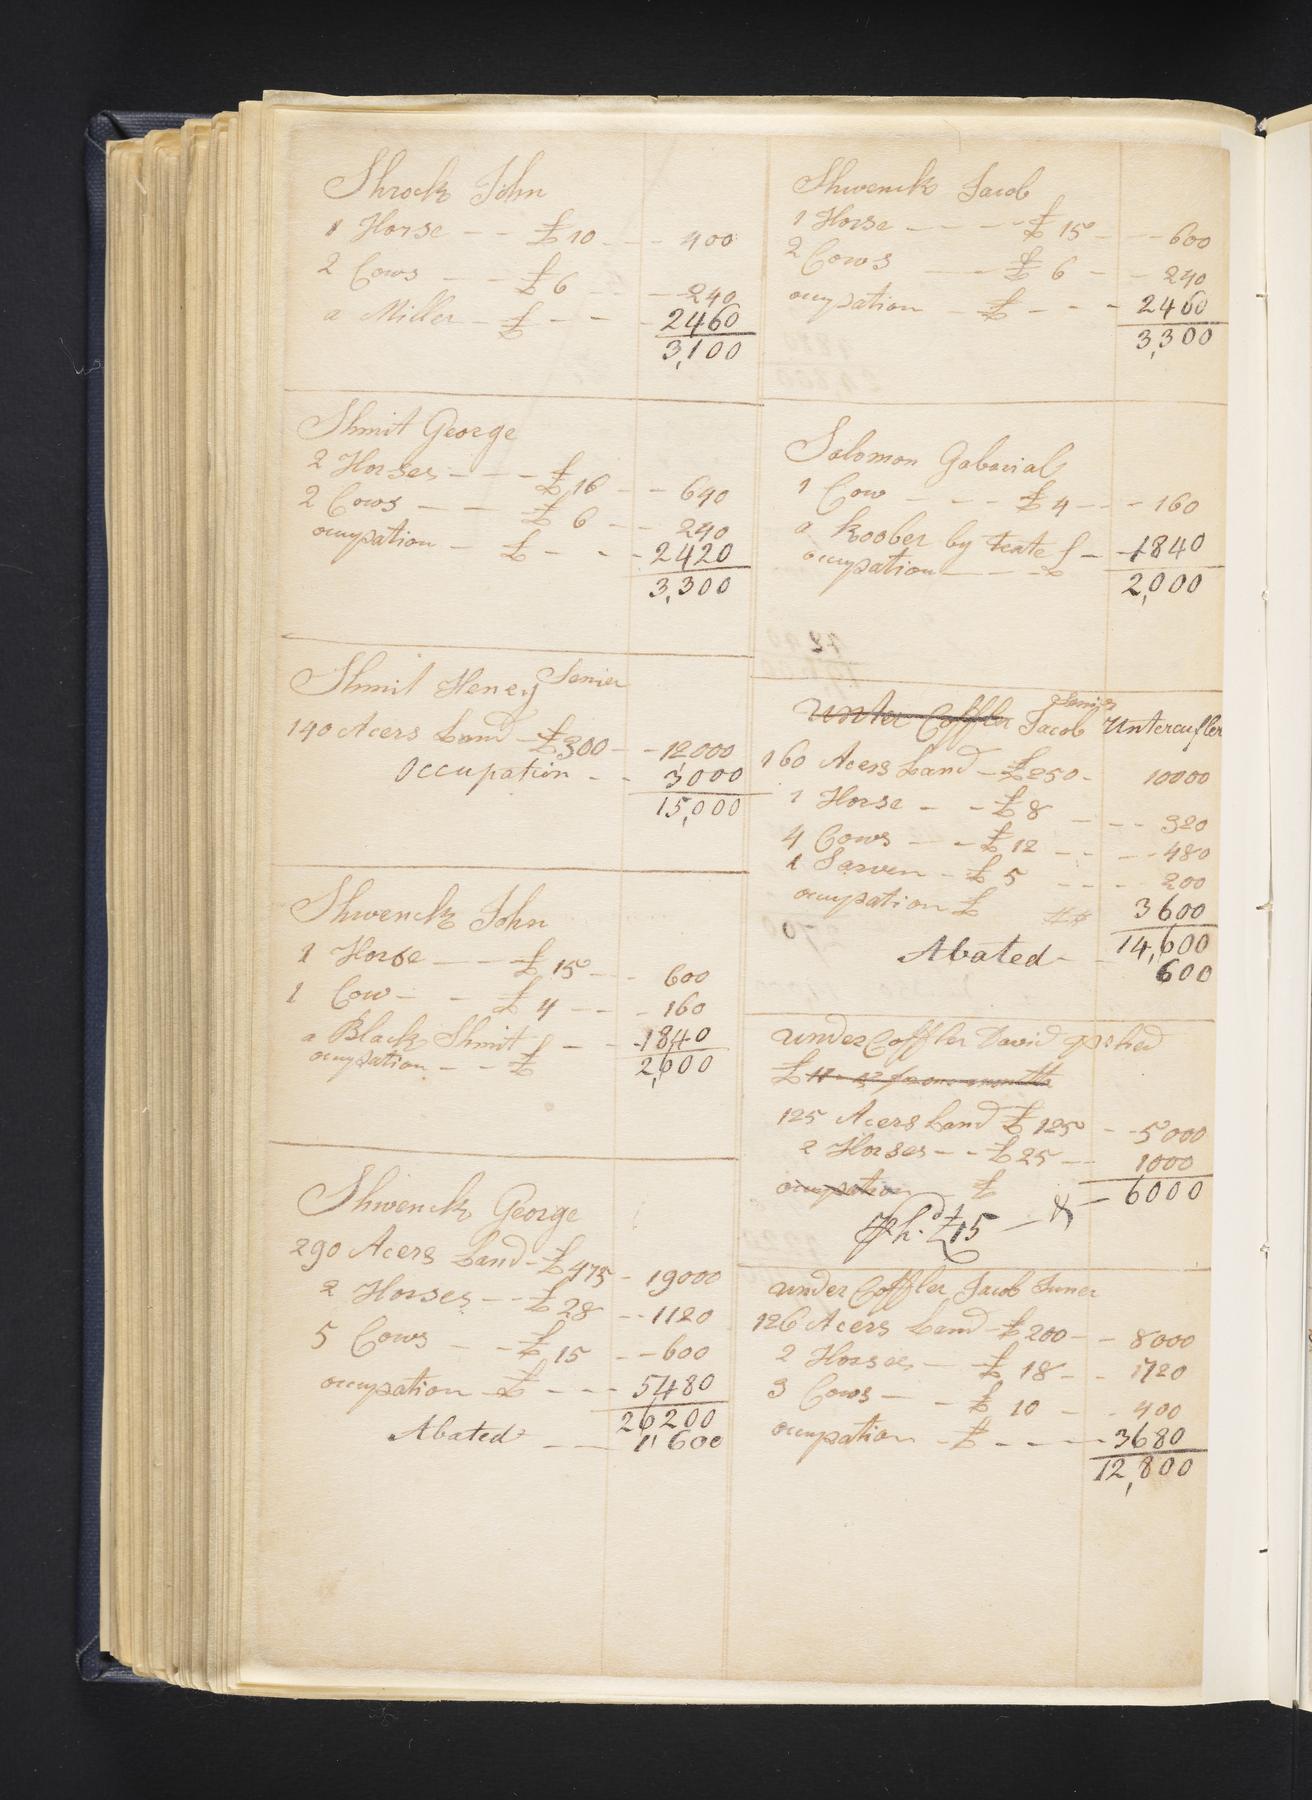 Shrock John
1 Horse - - £10 - - 400
2 Cows - - £6 - - 240
a Miller - £ - - - 2460
3,100
Shmit George
2 Horses - - - £16 - - 640
2 Cows - - £6 - - 240
ocupation - £ - - - 2420
3,300
Shmit Henry Senier
140 Acers Land - £300 - - 12,000
Occupation - - 3000
15,000
Shwenck John
1 Horse - - - £15 - - 600
1 Cow - - £4 - - - 160
a Black Shmit - - 1840
ocupation - - £
2,600
Shwenck George
290 Acers Land - £475 - 19000
2 Horses - - £28 - - 1120
5 Cows - - £15 - - 600
ocupation £ - - - 5480
26200
Abated - - 1600
Shwenck Jacob
1 Horse - - - - £15 - - 600
2 Cows - - £6 - - 240
ocupation - £ - - - 2460
3,300
Solomon Gaberial
1 Cow - - - £4 - - - 160
a Koober by teate - - 1840
ocupation - - - £
2,000
Unter Coffler Jacob Senier Untercufler
160 Acers Land - £250 - 10000
1 Horse - - £8 - - - 320
4 Cows - - £12 - - - 480
1 Sarven - £5 - - - 200
ocupation £ 3600
14,600
Abated - - 600
under Coffler David
£
125 Acers Land £125 - - 5000
2 Horses - - £25 - - 1000
ocupation £ - 6000
£15
under Coffler Jacob Juner
126 Acers Land - £200 - - 8000
2 Horses - - £18 - - 1720
3 Cows - - £10 - - 400
ocupation - £ - - - - 3680
12,800